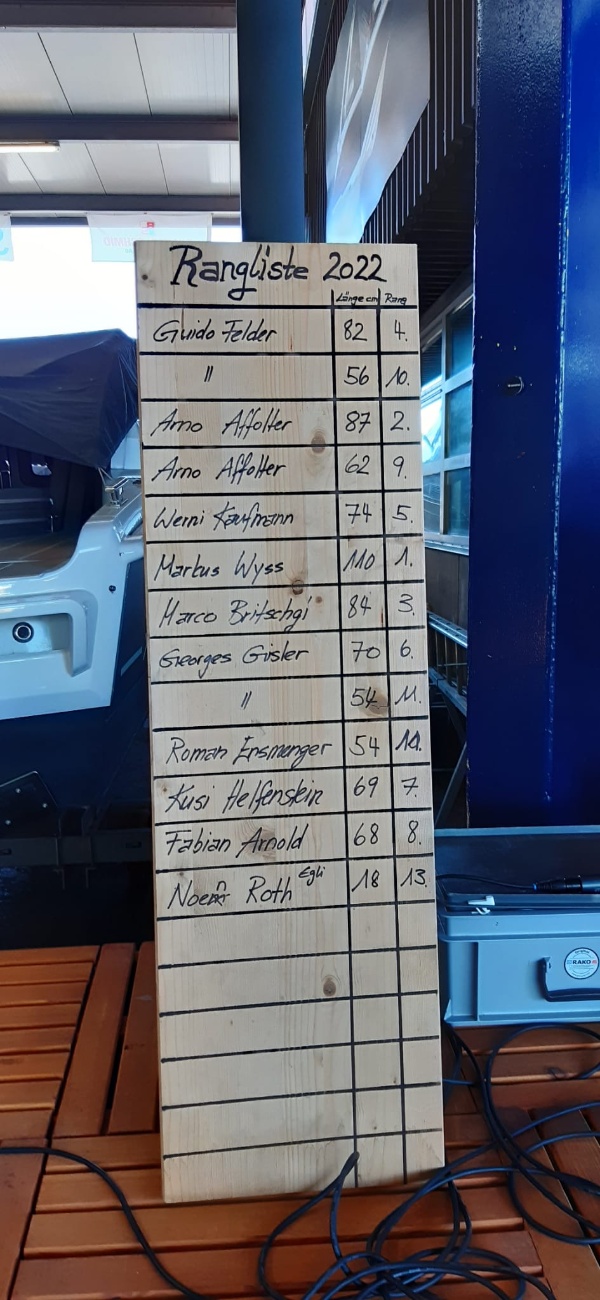 Rangliste 2022
Länge cm Rang
Guido Felder 82 4.
〃 56 10.
Arno Affolter 87 2.
Arno Affolter 62 9.
Werni Kaufmann 74 5.
Markus Wyss 110 1.
Marco Britschgi 84 3.
Georges Gisler 70 6.
〃 54 11.
Roman Ensmenger 54
Kusi Helfenstein 69 7.
Fabian Arnold 68 8.
Roth Egli 18 13.
RAKO